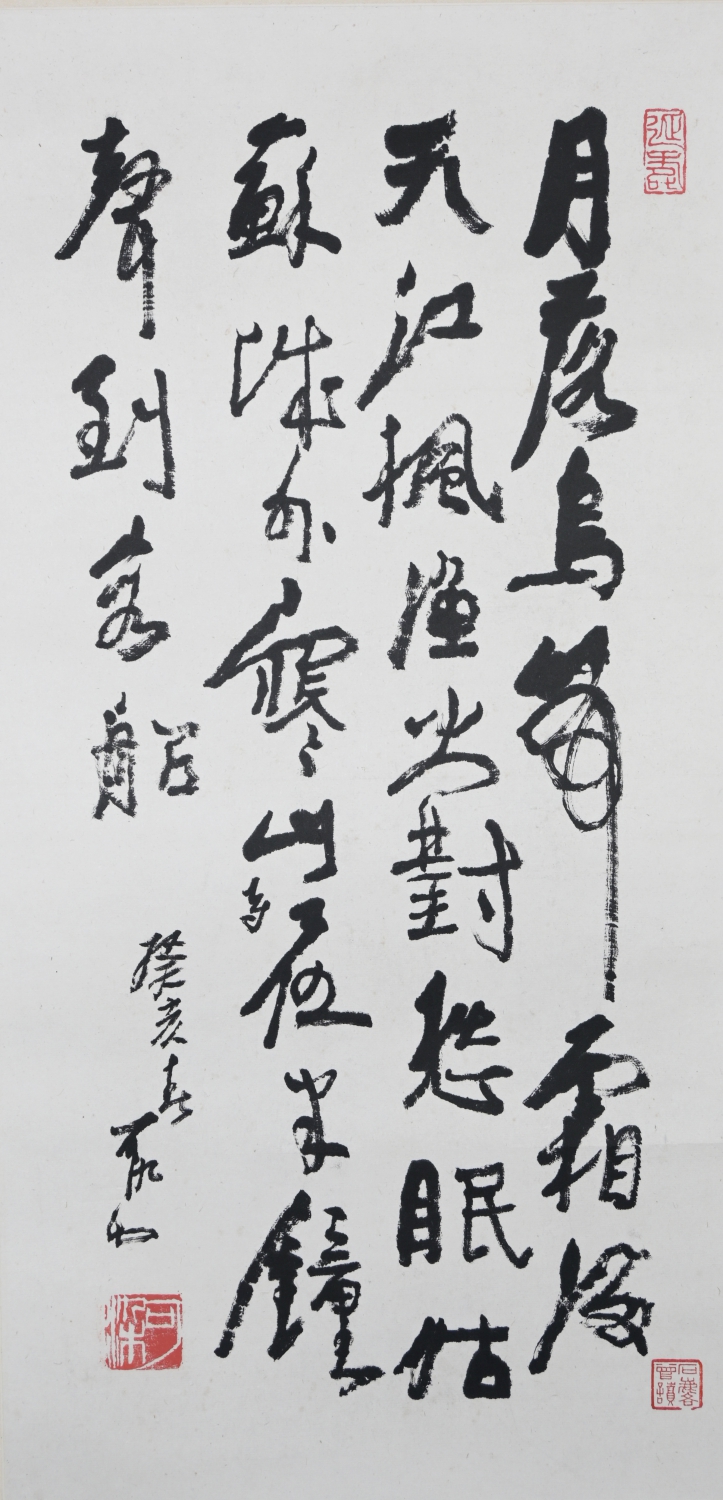 月落烏啼霜滿
天江楓漁火對愁眠姑
蘇城外寒山寺夜半鐘
聲到客船
癸亥春
可染
可染